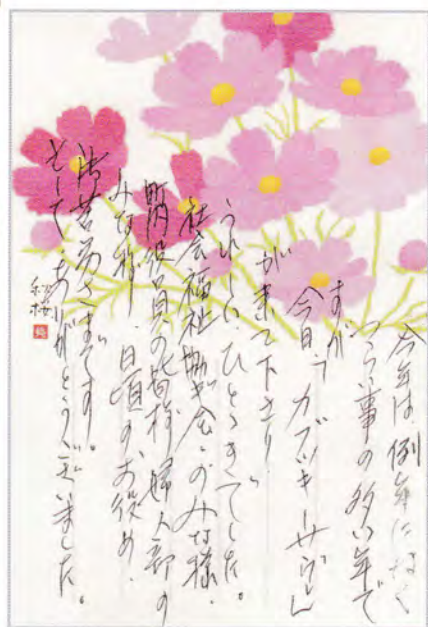 今年は例年になく
つらい事の多い年で
すが
今日、カブッキーサロン
が来て下さり
うれしいひとときでした。
社会福祉協ギ会のみな様、
町内役員の皆様、婦人部の
みな様、日頃のお役め、
御苦労さまです。
そして、ありがとうございました。